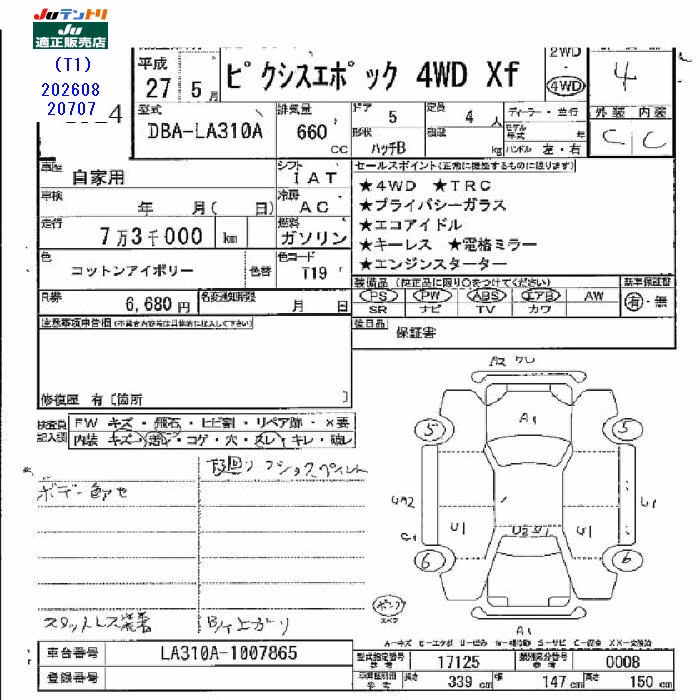 Juテントリ
Ju
適正販売店
(T1)
202608
20707
4
平成
27 5月
ピクシスエポック 4WD Xf
2WD
4WD
4
外装 内装
C C
型式
DBA-LA310A
排気量
660 cc
ドア 5
定員 4 人
形状 ハッチB
積載 kg
ディーラー・並行
モデル年式 年
ハンドル 左・右
車歴 自家用
シフト IAT
車検 年 月( 日)
冷房 AC
走行 7万3千000 km
燃料 ガソリン
色 コットンアイボリー
色替
色コード T19
R券 6,680円
名変通知期限 月 日
セールスポイント(正常に機能するものに限ります)
★4WD ★TRC
★プライバシーガラス
★エコアイドル
★キーレス ★電格ミラー
★エンジンスターター
装備品 (純正品に限り○をつけてください)
PS PW ABS エアB AW
SR ナビ TV カワ
新車保証書
有・無
後日品 保証書
注意事項申告欄(不具合内容等は具体的に記入して下さい)
修復歴 有〔箇所 〕
検査員記入欄
FW キズ・飛石・ヒビ割・リペア跡・×要
内装 キズ・汚レ・コゲ・穴・スレ・キレ・破レ
下回りフショスペイント
ボデー色アセ
スタットレス装着
A2 ワレ
A1
5
5
U1
U1
U1
6
6
A1
A-キズ E-エクボ U-凹ミ W-補修跡 S-サビ C-腐食 XX-交換済
車台番号 LA310A-1007865
登録番号
型式指定番号 参考 17125
類別区分番号 参考 0008
長さ 339 cm 幅 147 cm 高さ 150 cm